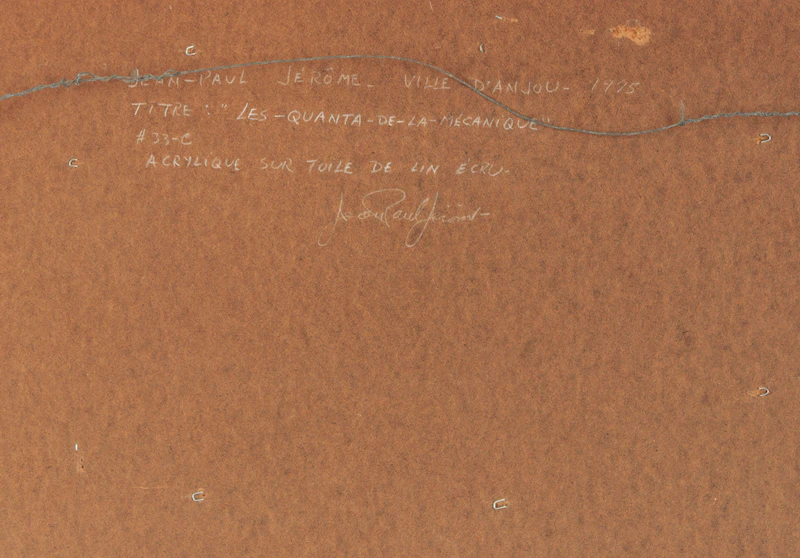 JEAN-PAUL JÉRÔME_ VILLE D'ANJOU- 1975
TITRE : "LES-QUANTA-DE-LA-MÉCANIQUE"
#33-C
ACRYLIQUE SUR TOILE DE LIN ECRU.
Jean Paul Jérôme